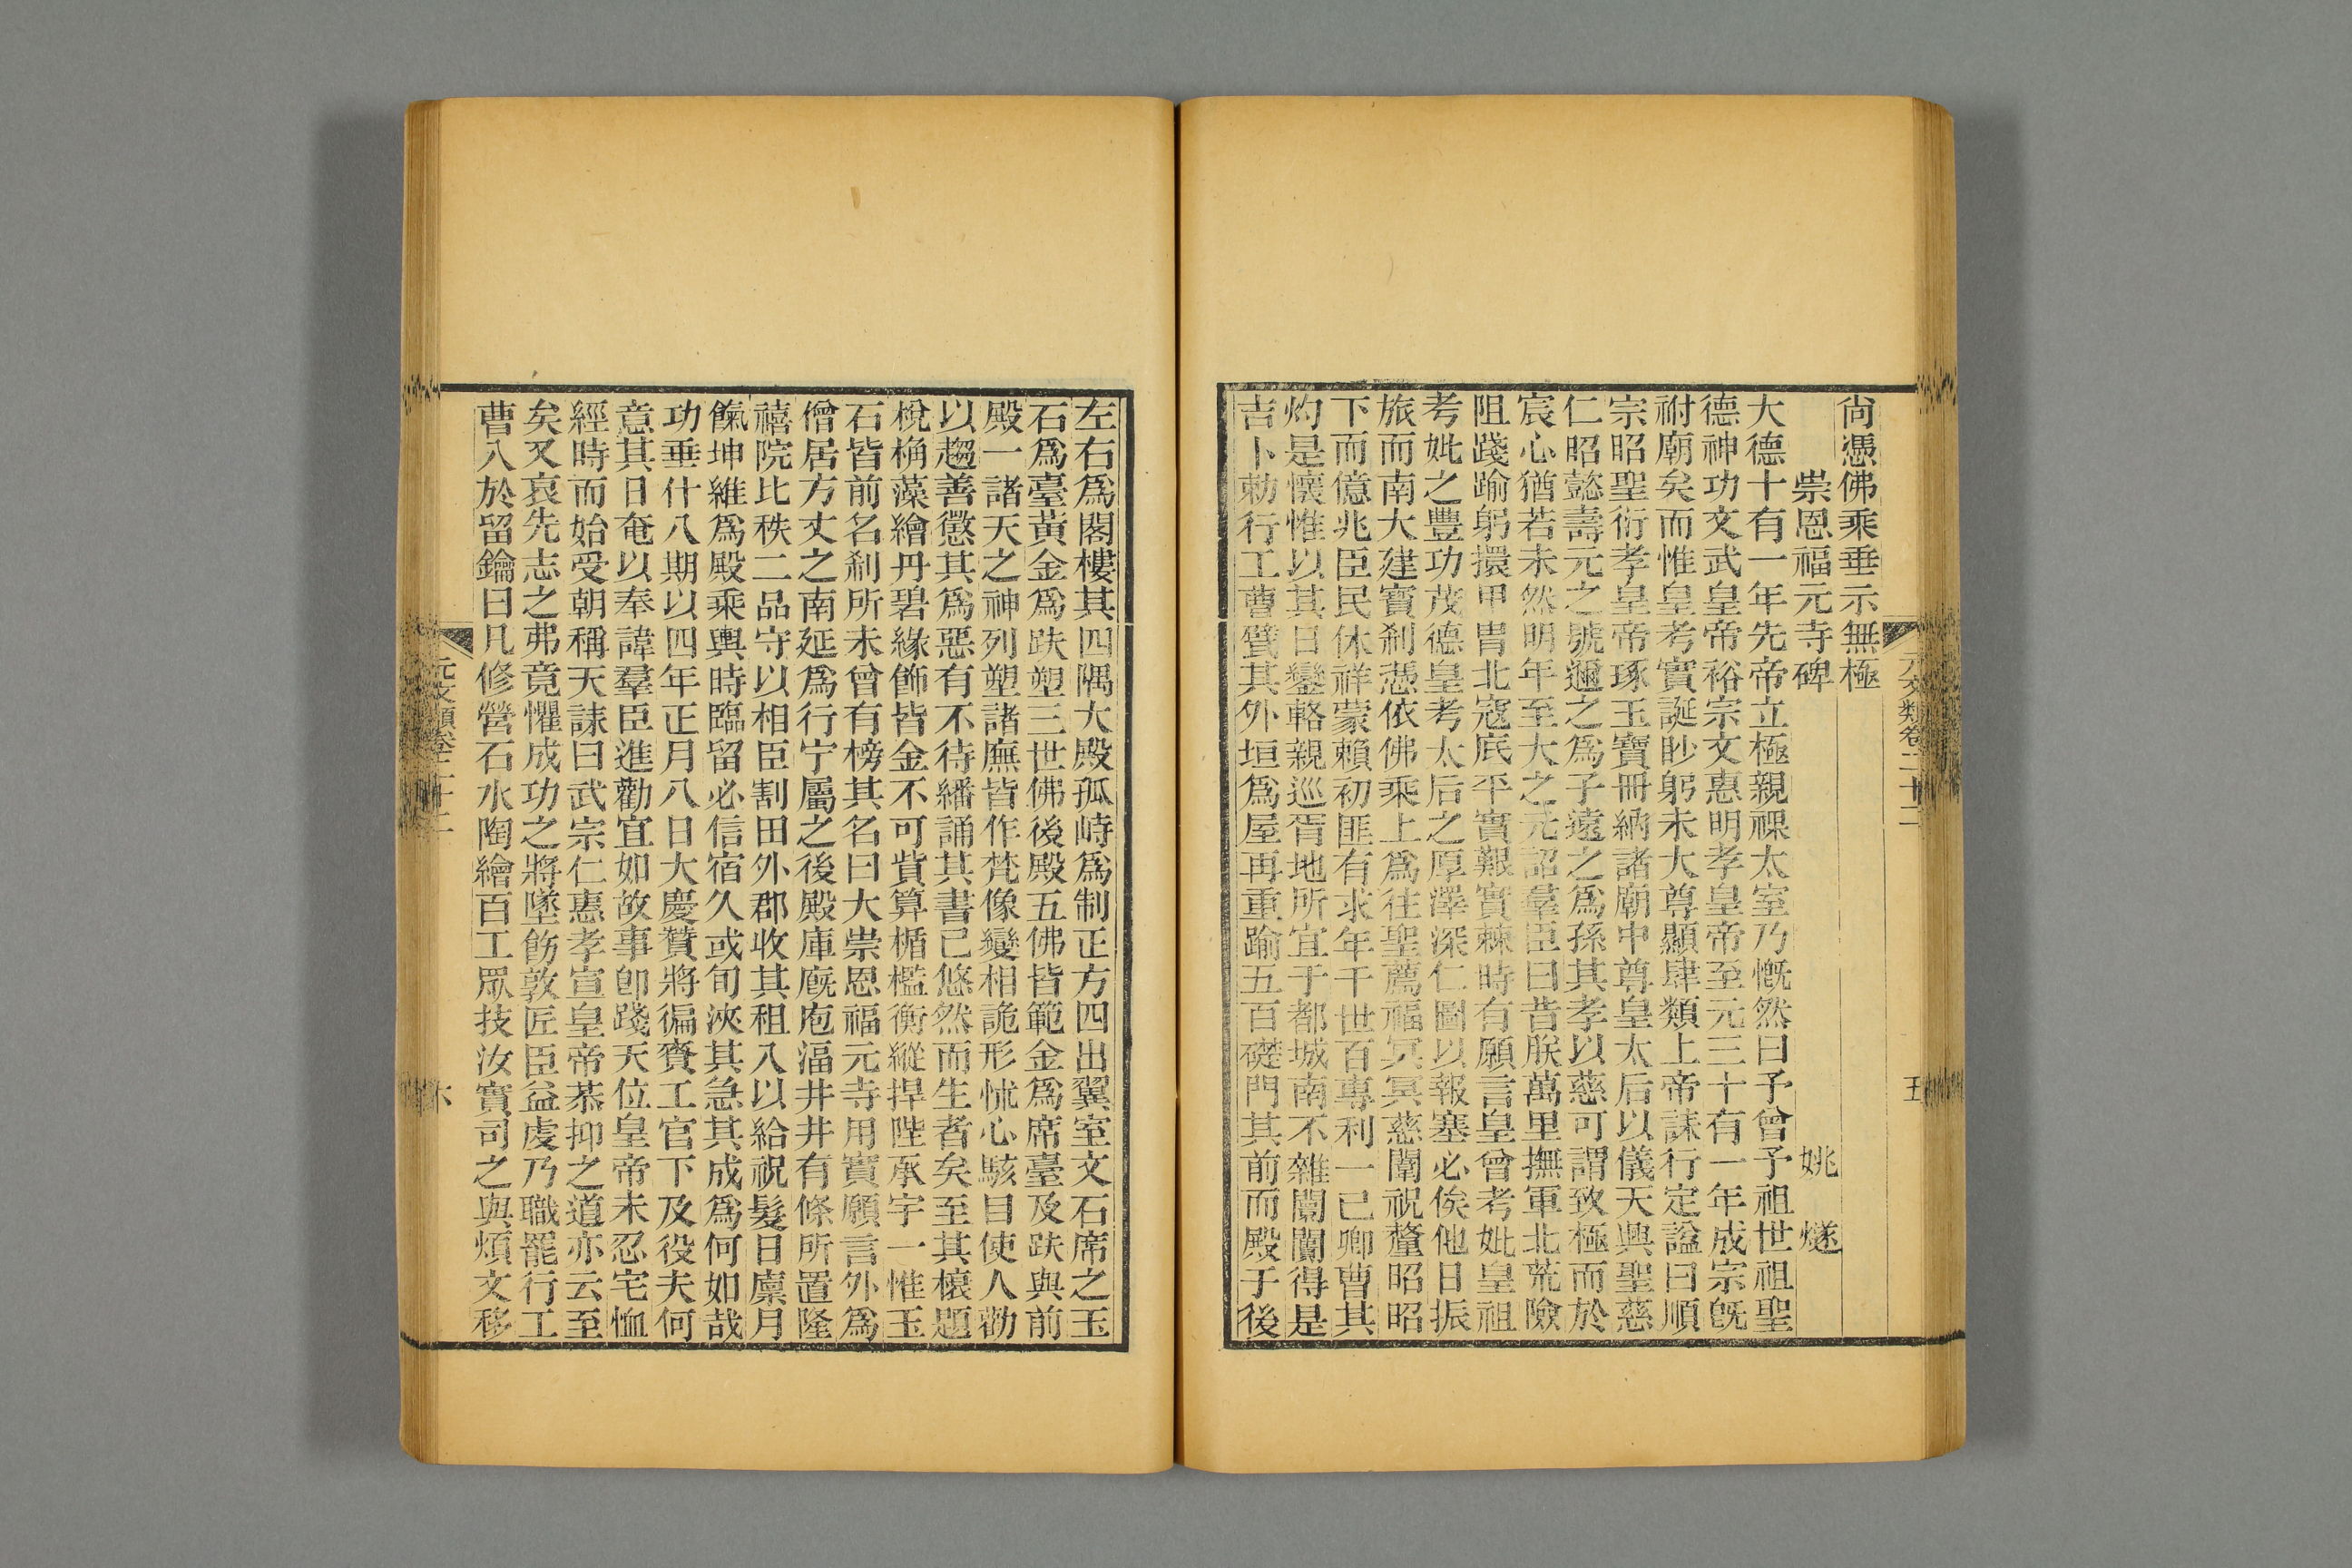 元文類卷二十二
五
尙憑佛乘垂示無極
崇恩福元寺碑　姚　燧
大德十有一年先帝立極親祼太室乃慨然曰予曾予祖世祖聖
德神功文武皇帝裕宗文惠明孝皇帝至元三十有一年成宗旣
祔廟矣而惟皇考實誕眇躬未大尊顯肆類上帝誄行定謚曰順
宗昭聖衍孝皇帝琢玉寶冊納諸廟中尊皇太后以儀天興聖慈
仁昭懿壽元之號邇之爲子遠之爲孫其孝以慈可謂致極而於
宸心猶若未然明年至大之元詔羣臣曰昔朕萬里撫軍北荒險
阻踐踰躬擐甲胄北寇底平實艱實棘時有願言皇曾考妣皇祖
考妣之豐功茂德皇考太后之厚澤深仁圖以報塞必俟他日振
旅而南大建寶刹憑依佛乘上爲往聖薦福冥冥慈闈祝釐昭昭
下而億兆臣民休祥蒙賴初匪有求年千世百專利一己卿曹其
灼是懷惟以其日鑾輅親巡胥地所宜于都城南不雜闤闠得是
吉卜勅行工曹甓其外垣爲屋再重踰五百礎門其前而殿于後
左右爲閣樓其四隅大殿孤峙爲制正方四出翼室文石席之玉
石爲臺黃金爲趺塑三世佛後殿五佛皆範金爲席臺及趺與前
殿一諸天之神列塑諸廡皆作梵像變相詭形怵心駭目使人勸
以趨善懲其爲惡有不待繙誦其書已悠然而生者矣至其榱題
梲桷藻繪丹碧緣飾皆金不可貲算楯檻衡縱捍陛承宇一惟玉
石皆前名刹所未曾有榜其名曰大崇恩福元寺用實願言外爲
僧居方丈之南延爲行宁屬之後殿庫廐庖湢井井有條所置隆
禧院比秩二品守以相臣割田外郡收其租入以給祝髮日廩月
餼坤維爲殿乘輿時臨留必信宿久或旬浹其急其成爲何如哉
功垂什八期以四年正月八日大慶贊將徧賚工官下及役夫何
意其日奄以奉諱羣臣進勸宜如故事卽踐天位皇帝未忍宅恤
經時而始受朝稱天誄曰武宗仁惠孝宣皇帝恭抑之道亦云至
矣又哀先志之弗竟懼成功之將墜飭敦匠臣益虔乃職罷行工
曹入於留鑰曰凡修營石水陶繪百工眾技汝實司之與煩文移
元文類卷二十二